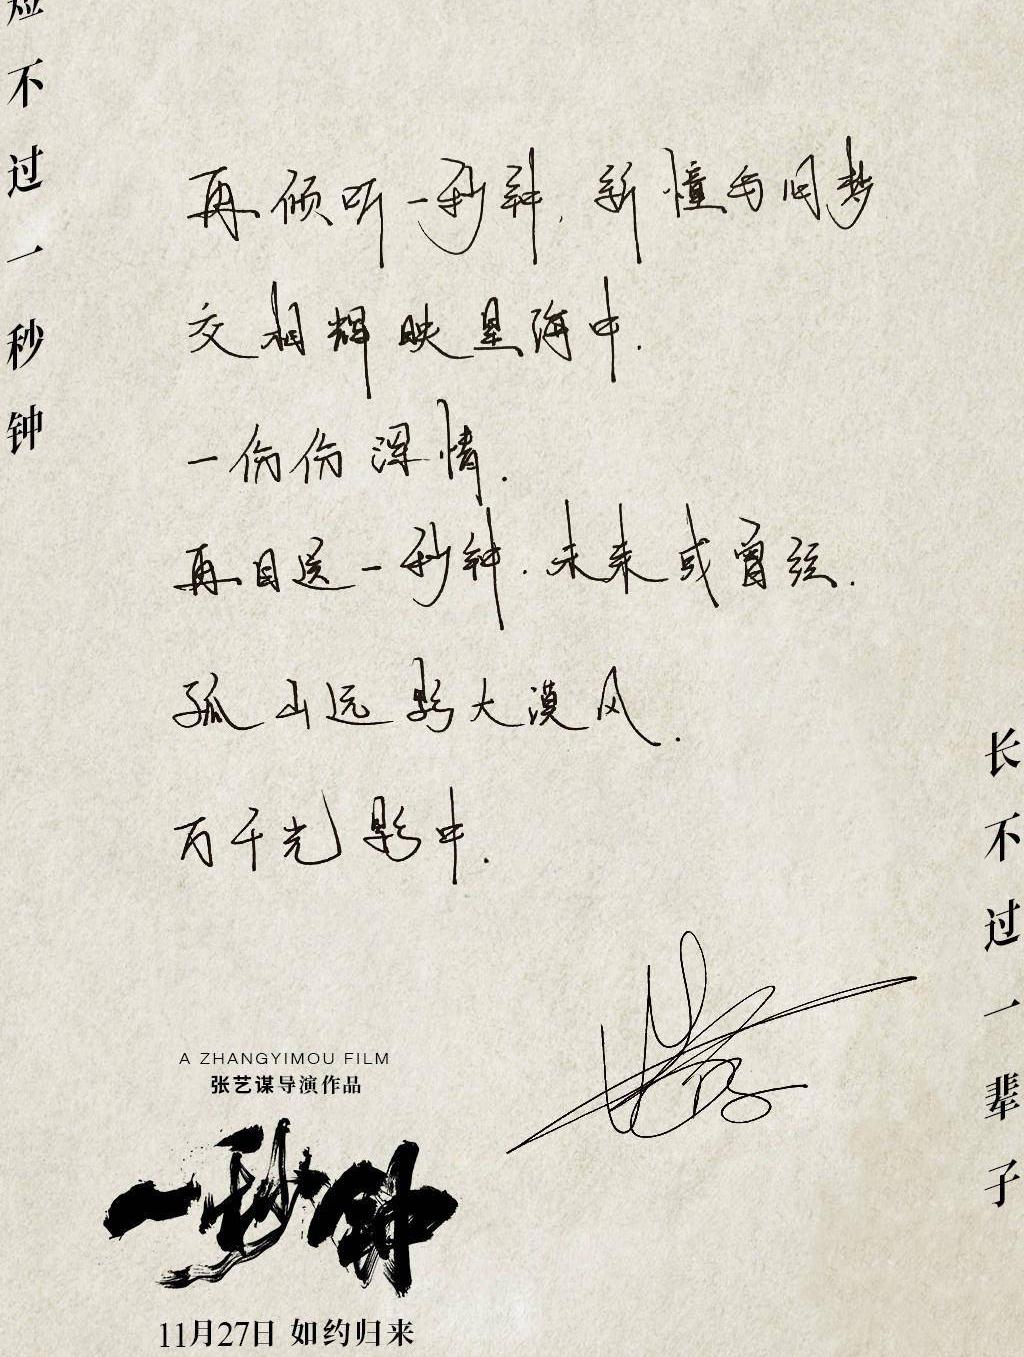 短不过一秒钟
再倾听一秒钟,新憧与旧梦
交相辉映星海中.
一份份深情.
再目送一秒钟.未来或曾经.
孤山远影大漠风.
万千光影中.
长不过一辈子
A ZHANGYIMOU FILM
张艺谋导演作品
一秒钟
11月27日 如约归来